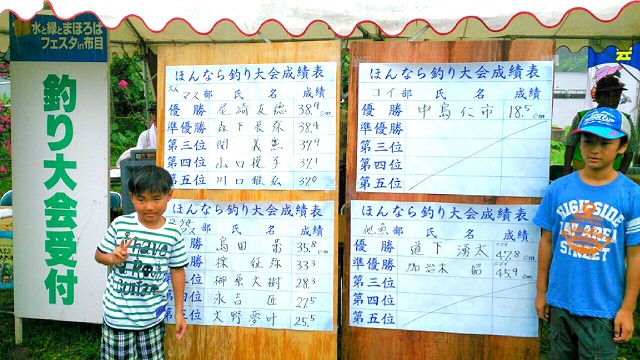 水と緑とまほろば
フェスタin布目
釣り大会受付
ほんなら釣り大会成績表
マス部 氏名 成績
優勝 尾崎友徳 38.9cm
準優勝 森下 38.4
第三位 関義 37.9
第四位 山口 37.1
第五位 川口雅弘 37.0
ほんなら釣り大会成績表
コイ部 氏名 成績
優勝 中島仁市 18.5cm
準優勝
第三位
第四位
第五位
ほんなら釣り大会成績表
マス部 氏名 成績
優勝 島田 35.8cm
勝 33.3
位 柳原大樹 28.3
位 永吉匠 27.5
位 大野夢叶 25.5
ほんなら釣り大会成績表
他魚部 氏名 成績
優勝 道下湧太 47.8cm
準優勝 加治木昭 45.9cm
第三位
第四位
第五位
HIGH-SIDE
STREET
have